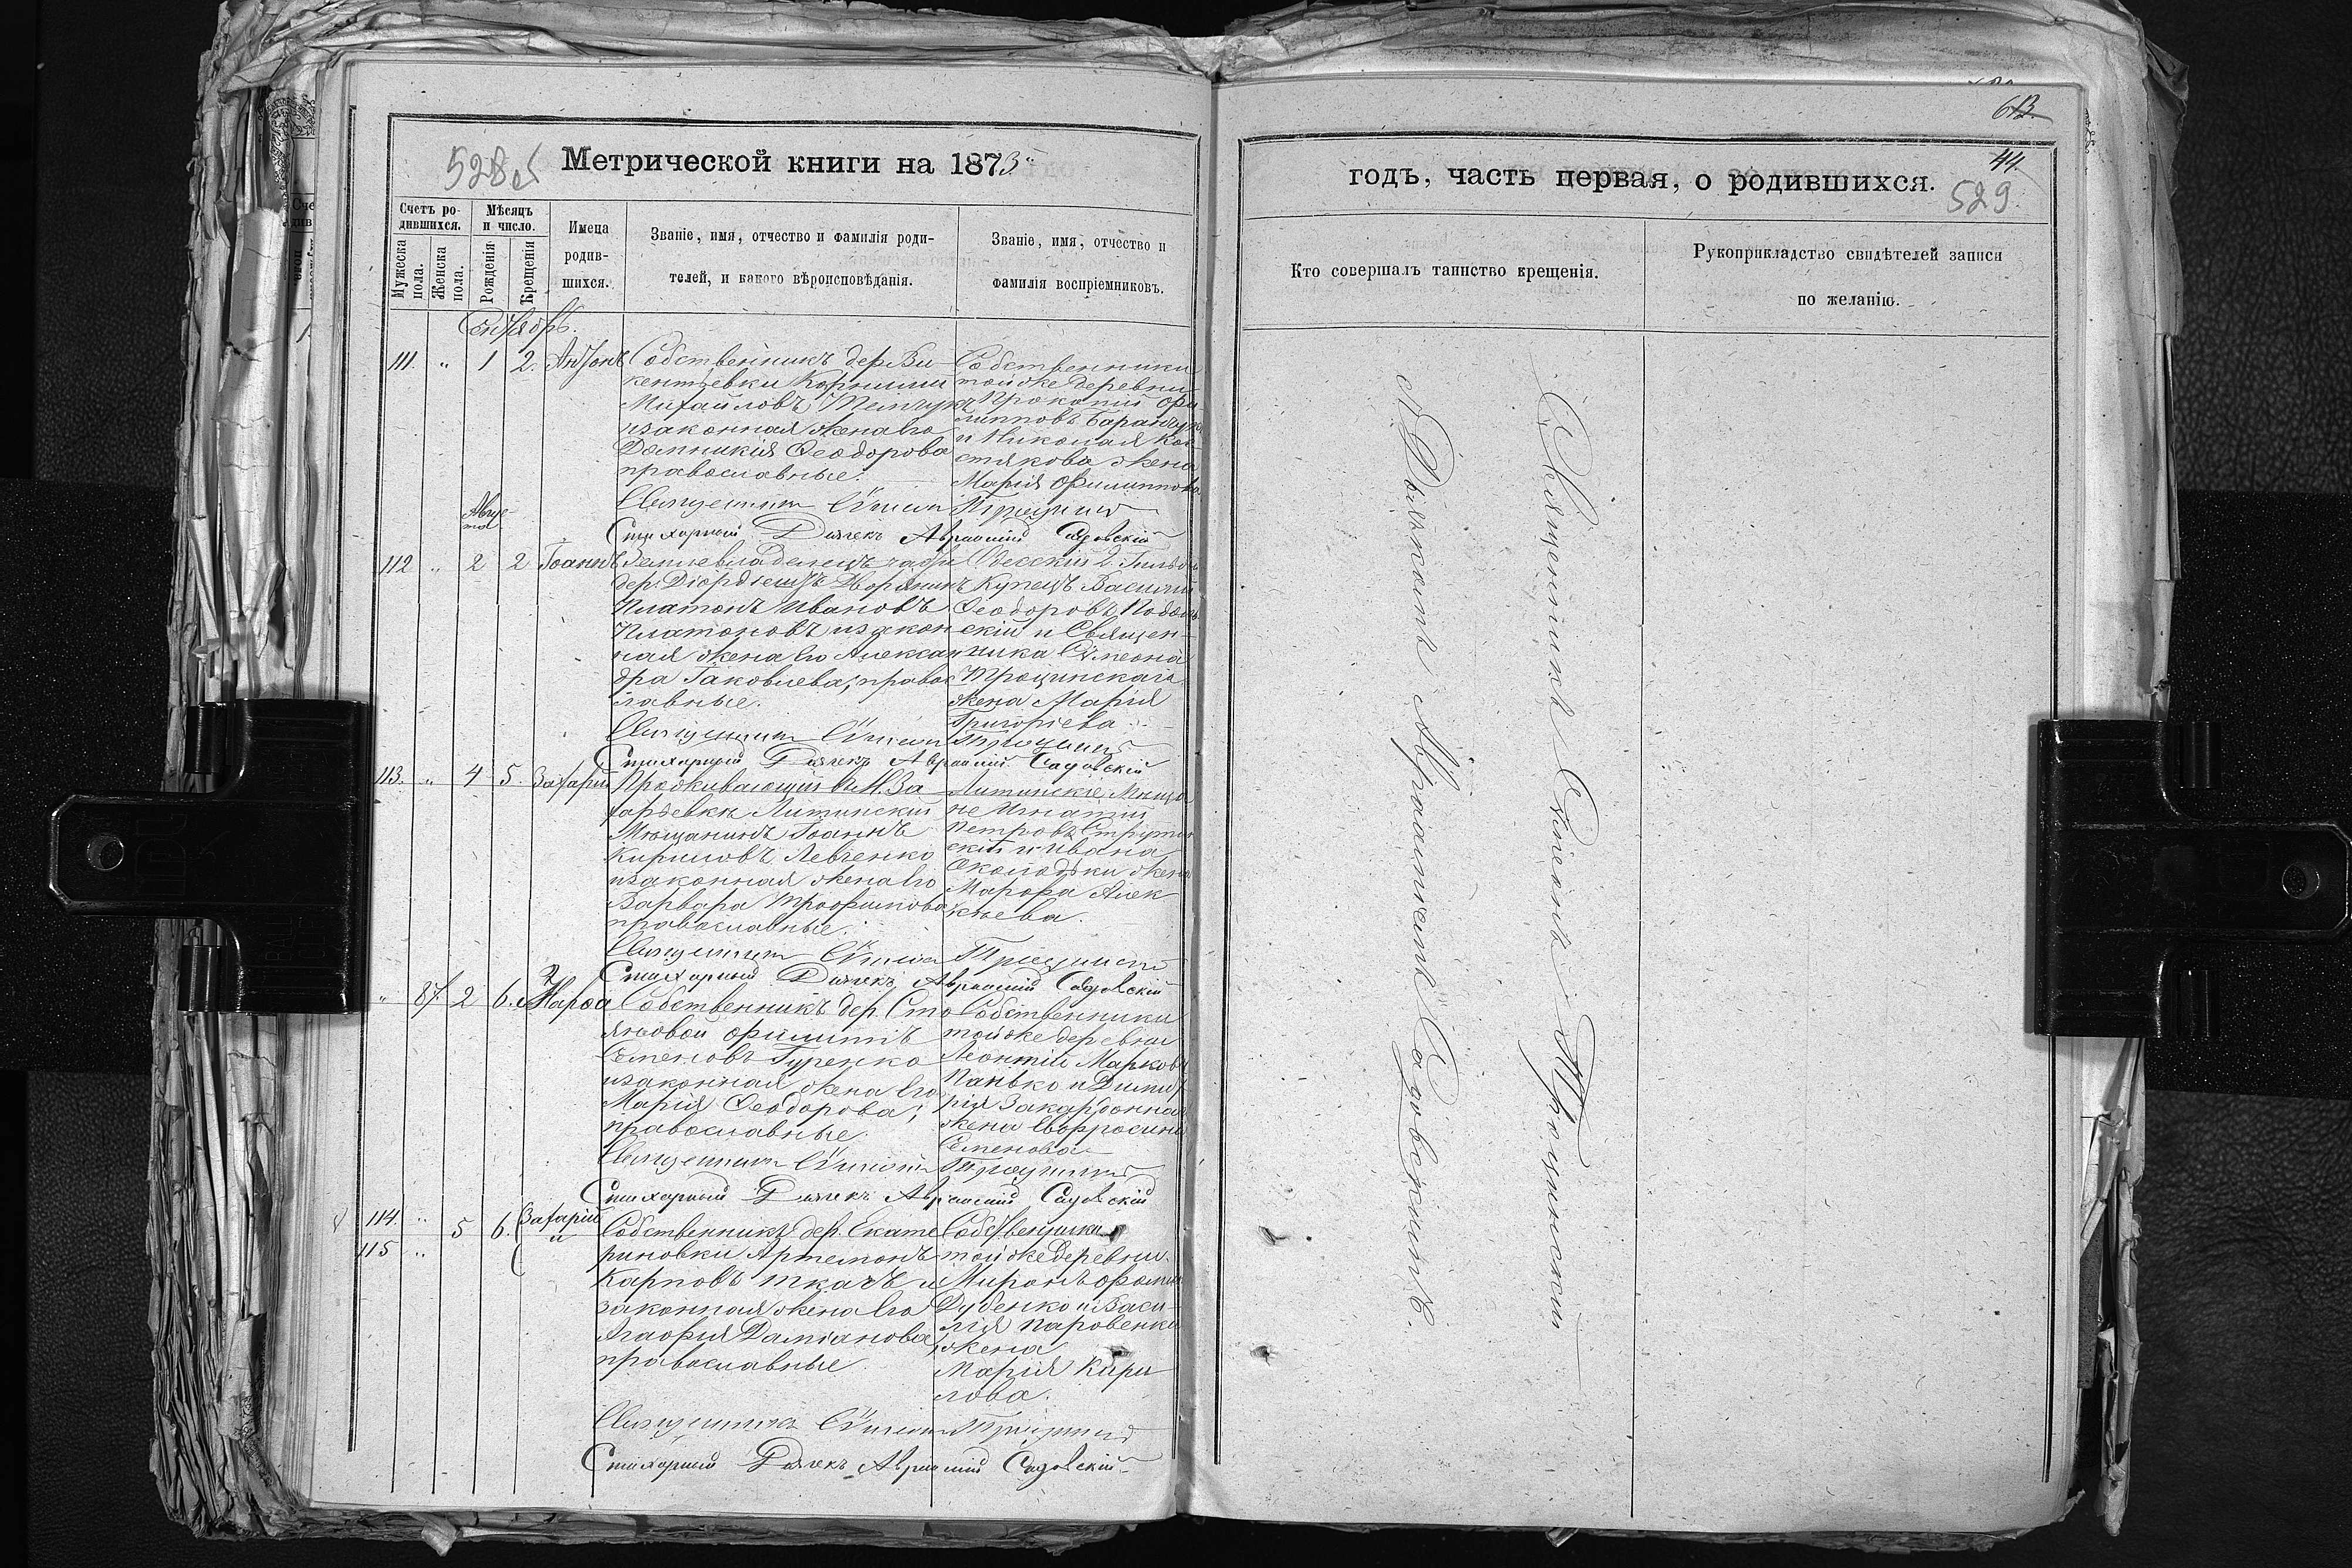 528 об
Метрической книги на 1873
Счетъ ро-
дившихся.
Мѣсяцъ
и число.
Мужеска
пола.
Женска
пола.
Рожденія
Крещенія
Имена
родив-
шихся.
Званіе, имя, отчество и фамилія роди-
телей, и какого вѣроисповѣданія.
Званіе, имя, отчество и
фамилія воспріемниковъ.
Сентябрь.
111. " 1 2. Антонъ
Собственникъ дер. Ви-
кентіевки Корнилій
Михайловъ
и законная жена его
Домникія Ѳеодорова
православные.
Собственники
той же деревни
Прокопій Фи
липповъ Баранчукъ
и Николая Ко
стякова жена
Марія Филиппова
Священникъ Сѵмеонъ Трощинскій
Стихарный Дьячекъ Авраамій Садовскій
Авгус
та
112 " 2 2 Іоаннъ
Землевладелецъ
дер. Дворянинъ
Платонъ Ивановъ
Платоновъ и закон
ная жена его Алексан
дра Іаковлева, правос
лавные.
Одесскій 2 Гильдіи
Купецъ Василій
Ѳеодоровъ Подоль
скій и Священ-
ника Сѵмеона
Трощинскаго
жена Марія
Григоріева
Священникъ Сѵмеонъ Трощинскій
Стихарный Дьячекъ Авраамій Садовскій
113. " 4 5. Захарій
Проживающій въ Н. За
харьевкѣ Литинскій
Мѣщанинъ Іоаннъ
Кириловъ Левченко
и законная жена его
Варвара Трофимова
православные.
Литинскіе Мѣща
не Игнатій
Петровъ
скій и Ивана
жена
Марфа Алек
сѣева.
Священникъ Сѵмеонъ Трощинскій
Стихарный Дьячекъ Авраамій Садовскій
" 87. 2 6. Марѳа
Собственникъ дер. Сто
яновой Филиппъ
Семеновъ Гуренко
и законная жена его
Марія Ѳеодорова;
православные.
Собственники
той же деревни
Леонтій Марковъ
Панько и Димит
рія Закардонна
жена Евфросинія
Семенова
Священникъ Сѵмеонъ Трощинскій
Стихарный Дьячекъ Авраамій Садовскій
114. " 5 6. Захарій
115 " "
Собственникъ дер. Екате
риновки Артемонъ
Карповъ Ткачъ и
законная жена его
Агафія Даміанова
православные.
Собственники
той же деревни
Миронъ Фомин
Дубенко и Васи-
лія Паровенка
жена
Марія Кири
лова.
Священникъ Сѵмеонъ Трощинскій
Стихарный Дьячекъ Авраамій Садовскій
613
44.
529
годъ, часть первая, о родившихся.
Кто совершалъ таинство крещенія.
Рукоприкладство свидѣтелей записи
по желанію.
Священникъ Сѵмеонъ Трощинскій
съ Дьячкомъ Авраамiемъ Садовскимъ.